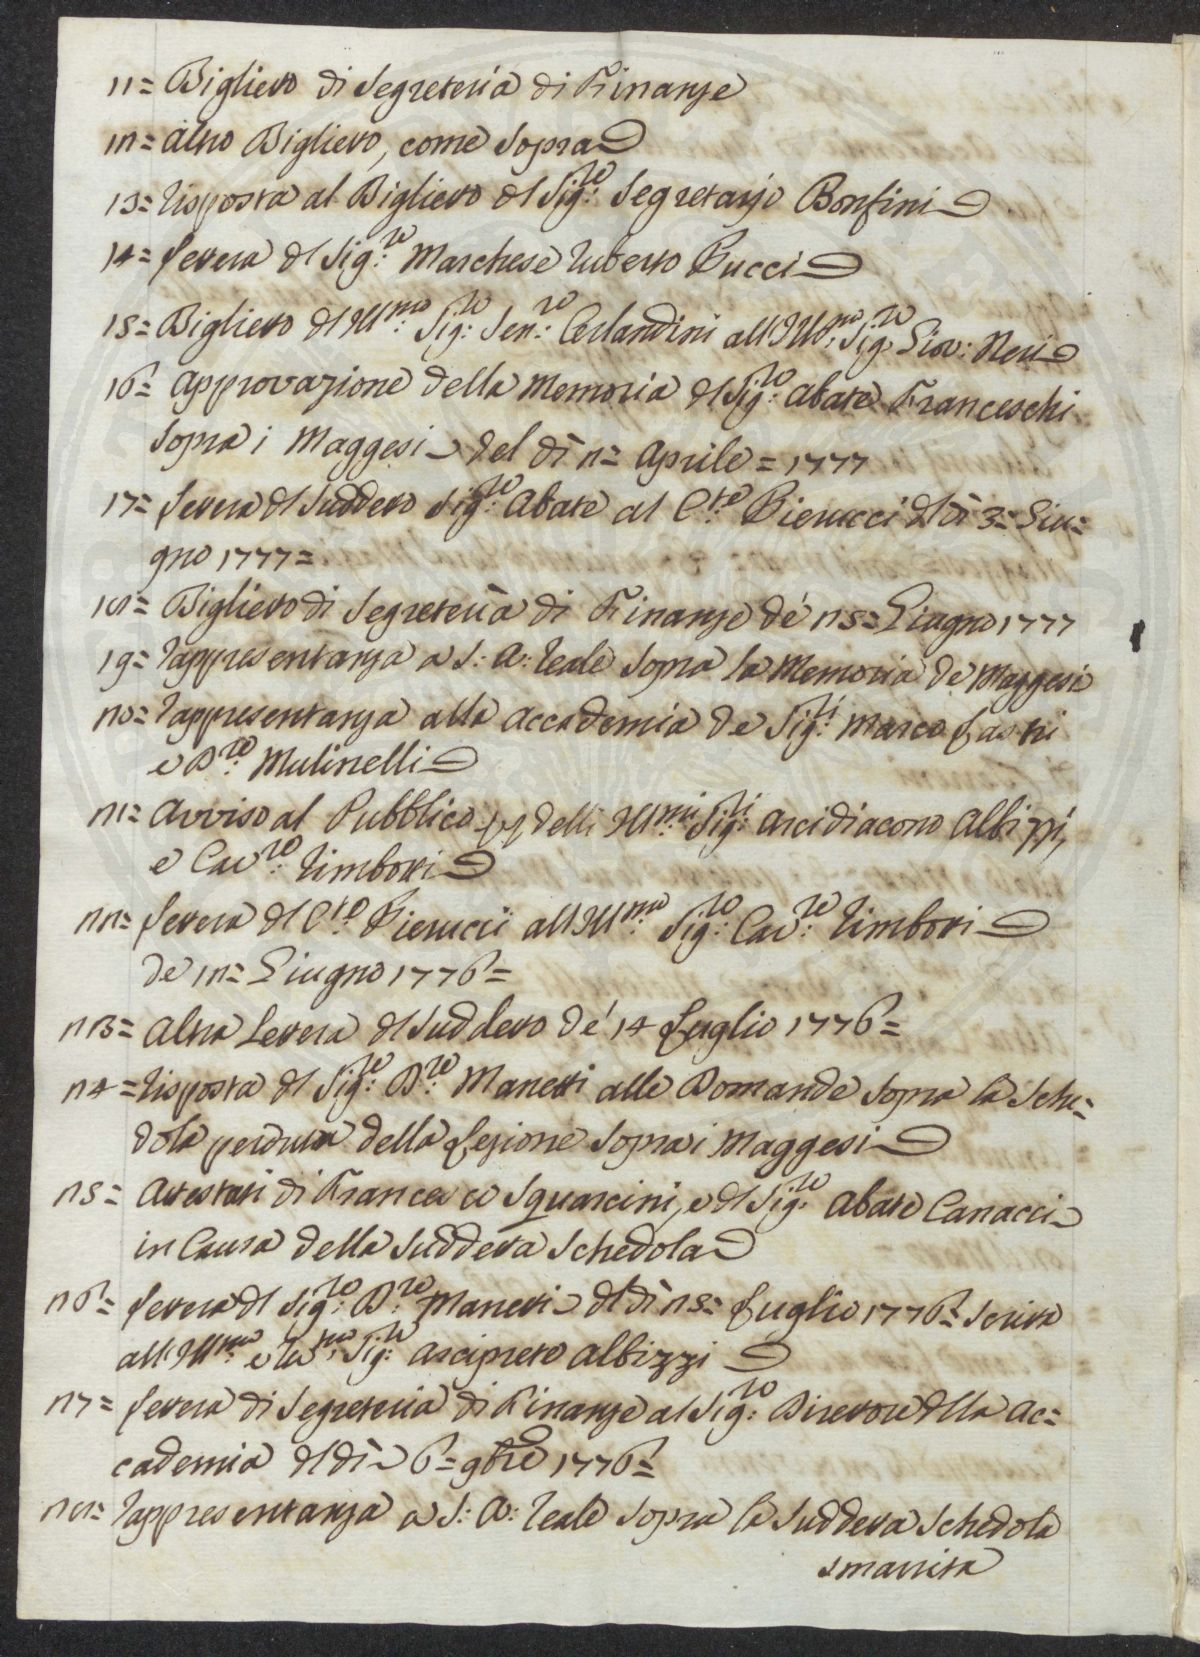 11= Biglietto di Segreteria di Finanze
12= Altro Biglietto, come sopra
13= Risposta al Biglietto del Sig:re Segretario Bonfini
14= Lettera del Sig:re Marchese Ruberto Pucci
15= Biglietto dell'Ill:mo Sig:re Sen:re Orlandini all'Ill:mo Sig:re Giov: Neri
16= Approvazione della Memoria del Sig:re Abate Franceschi
sopra i Maggesi del dì 2= Aprile = 1777
17= Lettera del suddetto Sig:re Abate al C:te Pierucci del dì 3= Giu=
gno 1777=
18= Biglietto di Segreteria di Finanze de' 25= Giugno 1777
19= Rappresentanza a S: A: Reale sopra la Memoria de Maggesi
20= Rappresentanza alla Accademia de Sig:ri Marco Lastri
e D:re Mulinelli
21= Avviso al Pubblico delli Ill:mi Sig:ri Arcidiacono Albizzi,
e Cav:re Rimbotti
22= Lettera del C:te Pierucci all'Ill:mo Sig:re Cav:re Rimbotti
de 12= Giugno 1776=
23= Altra Lettera del suddetto de' 14 Luglio 1776=
24= Risposta del Sig:re D:re Manetti alle Domande sopra la Sche=
dola perduta della Lezione sopra i Maggesi
25= Attestati di Francesco Squarcini, e del Sig:re Abate Canacci
in Causa della suddetta Schedola
26= Lettera del Sig:re D:re Manetti del dì 25= Luglio 1776= scritta
all'Ill:mo e Rev:mo Sig:re Arciprete Albizzi
27= Lettera di Segreteria di Finanze al Sig:re Direttore della Ac=
cademia del dì 6= 9bre 1776=
28= Rappresentanza a S: A: Reale sopra la suddetta Schedola
smarrita